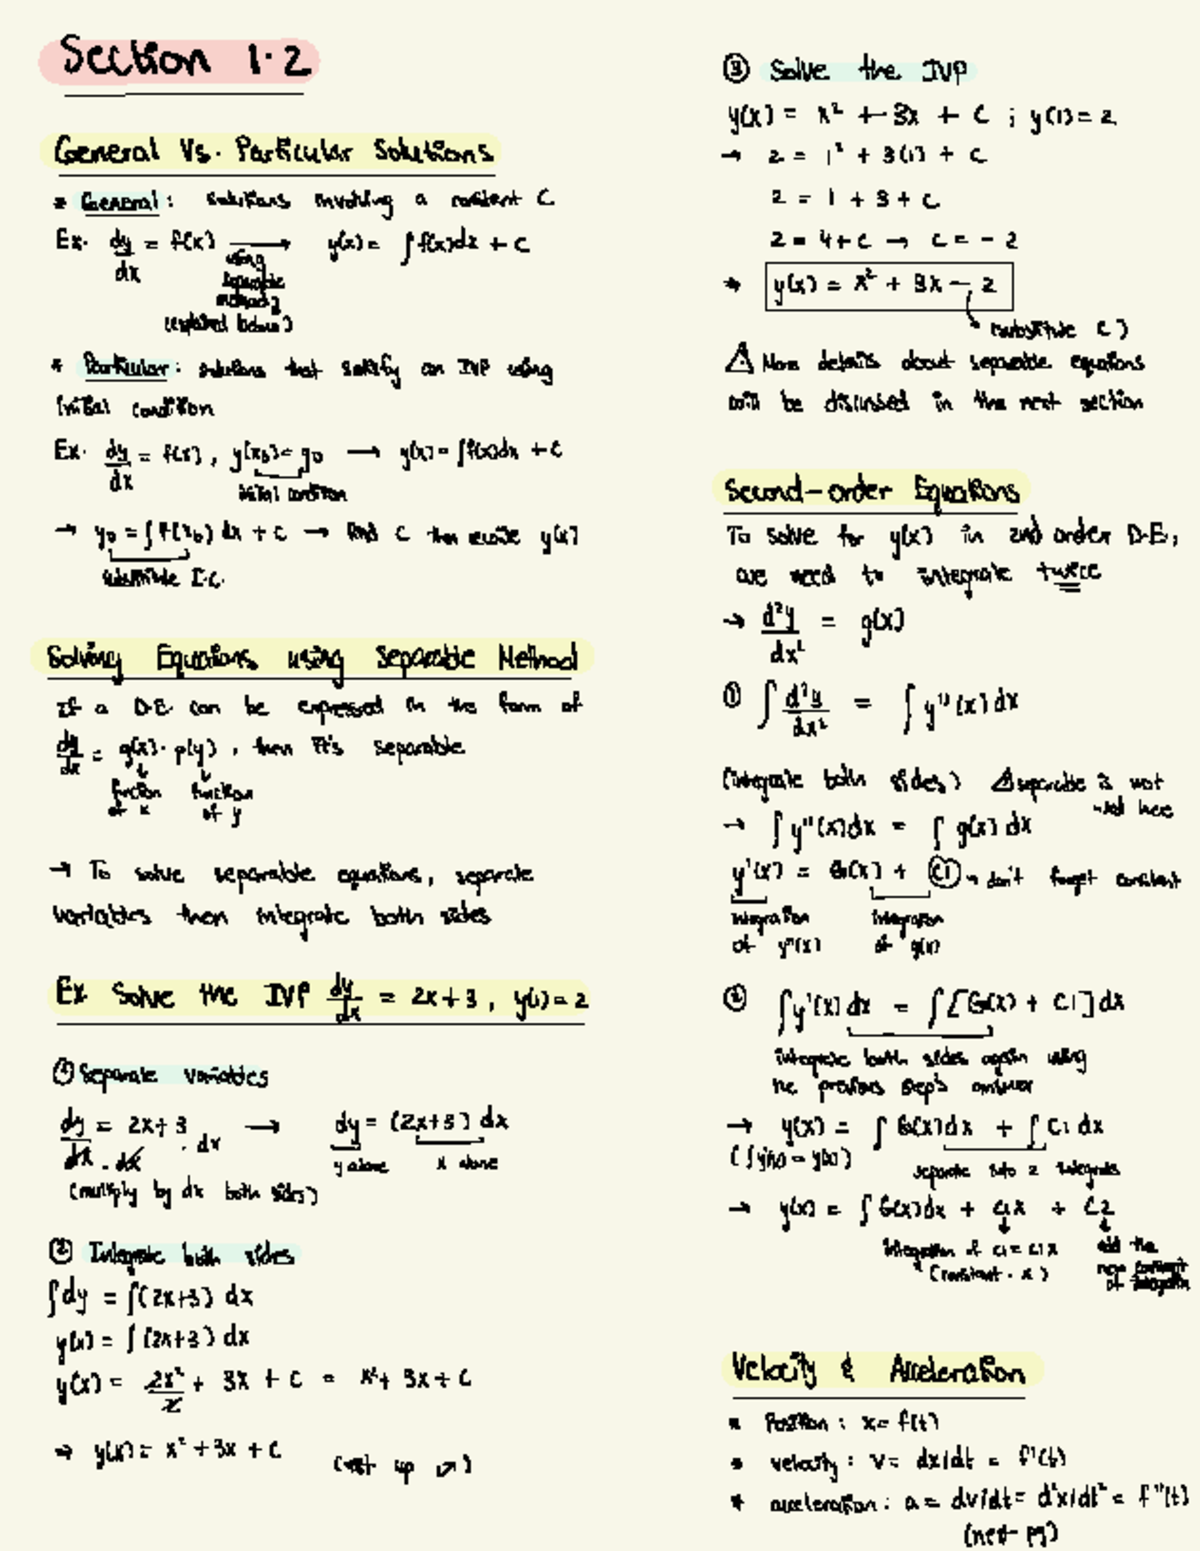 Section 1.2
General Vs. Particular Solutions
* General : solutions involving a constant C
Ex. dy/dx = f(x) → y(x) = ∫ f(x)dx + C
using
separable
method
(explained below)
* Particular : solutions that satisfy an IVP using
initial condition
Ex. dy/dx = f(x) , y(x0) = y0 → y(x) = ∫f(x)dx + C
initial condition
→ y0 = ∫ f(x0) dx + C → find C then rewrite y(x)
substitute I.C.
Solving Equations using Separable Method
If a D.E. can be expressed in the form of
dy/dx = g(x) · p(y) , then it's separable
function of x function of y
→ To solve separable equations, separate
variables then integrate both sides
Ex Solve the IVP dy/dx = 2x+3 , y(1) = 2
① Separate variables
dy/dx · dx = 2x+3 · dx → dy = (2x+3) dx
y alone x alone
(multiply by dx both sides)
② Integrate both sides
∫dy = ∫(2x+3) dx
y(x) = ∫(2x+3) dx
y(x) = 2x²/2 + 3x + C = x² + 3x + C
→ y(x) = x² + 3x + C
(next up ↗)
③ Solve the IVP
y(x) = x² + 3x + C ; y(1) = 2
→ 2 = 1² + 3(1) + C
2 = 1 + 3 + C
2 = 4 + C → C = - 2
→ y(x) = x² + 3x - 2
(substitute C)
⚠ More details about separable equations
will be discussed in the next section
Second-order Equations
To solve for y(x) in 2nd order D.E,
we need to integrate twice
→ d²y/dx² = g(x)
① ∫ d²y/dx² = ∫ y''(x) dx
(integrate both sides) ⚠ separable is not
used here
→ ∫ y''(x)dx = ∫ g(x) dx
y'(x) = G(x) + C1 → don't forget constant
integration of y''(x) integration of g(x)
② ∫y'(x) dx = ∫[G(x) + C1] dx
integrate both sides again using
the previous step's answer
→ y(x) = ∫ G(x)dx + ∫ C1 dx
(∫y'(x) = y(x)) separate into 2 integrals
→ y(x) = ∫ G(x)dx + C1x + C2
integration of C1 = C1x
(constant · x)
add the
new constant
of integration
Velocity & Acceleration
* Position : x = f(t)
* velocity : v = dx/dt = f'(t)
* acceleration : a = dv/dt = d²x/dt² = f''(t)
(next pg)